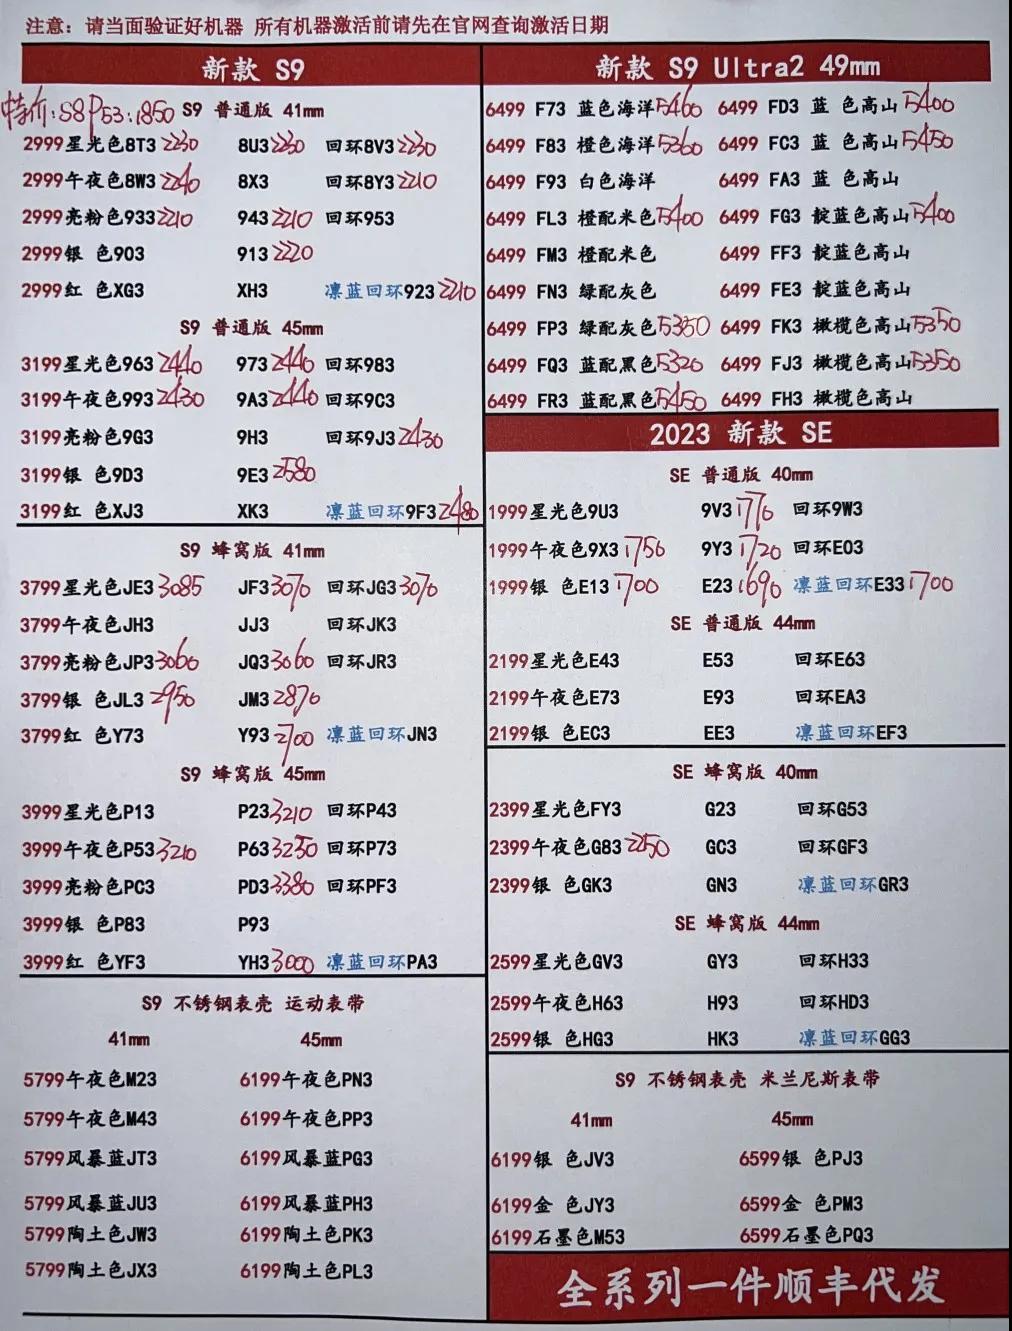 注意：请当面验证好机器 所有机器激活前请先在官网查询激活日期
新款 S9
特价:S8P53:1850 S9 普通版 41mm
2999星光色8T3 2230 8U3 2230 回环8V3 2230
2999午夜色8W3 2240 8X3 回环8Y3 2210
2999亮粉色933 2210 943 2210 回环953
2999银 色903 913 2220
2999红 色XG3 XH3 凛蓝回环923 2210
S9 普通版 45mm
3199星光色963 2440 973 2440 回环983
3199午夜色993 2430 9A3 2440 回环9C3
3199亮粉色9G3 9H3 回环9J3 2430
3199银 色9D3 9E3 2580
3199红 色XJ3 XK3 凛蓝回环9F3 2480
S9 蜂窝版 41mm
3799星光色JE3 3085 JF3 3070 回环JG3 3070
3799午夜色JH3 JJ3 回环JK3
3799亮粉色JP3 3060 JQ3 3060 回环JR3
3799银 色JL3 2950 JM3 2870
3799红 色Y73 Y93 2700 凛蓝回环JN3
S9 蜂窝版 45mm
3999星光色P13 P23 3210 回环P43
3999午夜色P53 3210 P63 3230 回环P73
3999亮粉色PC3 PD3 3380 回环PF3
3999银 色P83 P93
3999红 色YF3 YH3 3000 凛蓝回环PA3
S9 不锈钢表壳 运动表带
41mm 45mm
5799午夜色M23 6199午夜色PN3
5799午夜色M43 6199午夜色PP3
5799风暴蓝JT3 6199风暴蓝PG3
5799风暴蓝JU3 6199风暴蓝PH3
5799陶土色JW3 6199陶土色PK3
5799陶土色JX3 6199陶土色PL3
新款 S9 Ultra2 49mm
6499 F73 蓝色海洋 5460 6499 FD3 蓝 色高山 5400
6499 F83 橙色海洋 5360 6499 FC3 蓝 色高山 5450
6499 F93 白色海洋 6499 FA3 蓝 色高山
6499 FL3 橙配米色 5400 6499 FG3 靛蓝色高山 5400
6499 FM3 橙配米色 6499 FF3 靛蓝色高山
6499 FN3 绿配灰色 6499 FE3 靛蓝色高山
6499 FP3 绿配灰色 5350 6499 FK3 橄榄色高山 5350
6499 FQ3 蓝配黑色 5320 6499 FJ3 橄榄色高山 5350
6499 FR3 蓝配黑色 5450 6499 FH3 橄榄色高山
2023 新款 SE
SE 普通版 40mm
1999星光色9U3 9V3 1770 回环9W3
1999午夜色9X3 1750 9Y3 1720 回环E03
1999银 色E13 1700 E23 1690 凛蓝回环E33 1700
SE 普通版 44mm
2199星光色E43 E53 回环E63
2199午夜色E73 E93 回环EA3
2199银 色EC3 EE3 凛蓝回环EF3
SE 蜂窝版 40mm
2399星光色FY3 G23 回环G53
2399午夜色G83 2250 GC3 回环GF3
2399银 色GK3 GN3 凛蓝回环GR3
SE 蜂窝版 44mm
2599星光色GV3 GY3 回环H33
2599午夜色H63 H93 回环HD3
2599银 色HG3 HK3 凛蓝回环GG3
S9 不锈钢表壳 米兰尼斯表带
41mm 45mm
6199银 色JV3 6599银 色PJ3
6199金 色JY3 6599金 色PM3
6199石墨色M53 6599石墨色PQ3
全系列一件顺丰代发